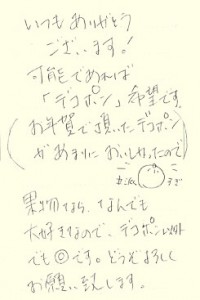 いつもありがとう
ございます!
可能であれば
「デコポン」希望です。
(お年賀で頂いたデコポン
があまりにおいしかったので)
果物なら、なんでも
大好きなので、デコポン以外
でも◎です。どうぞよろしく
お願い致します。